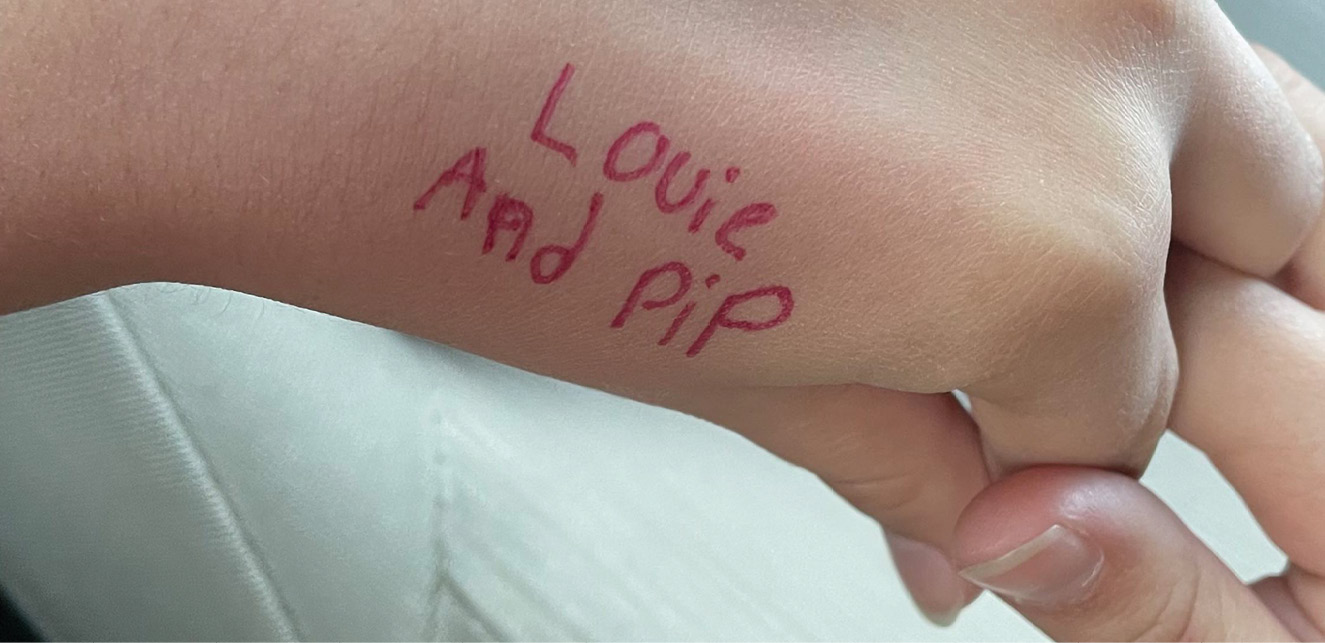 Louie
And PiP